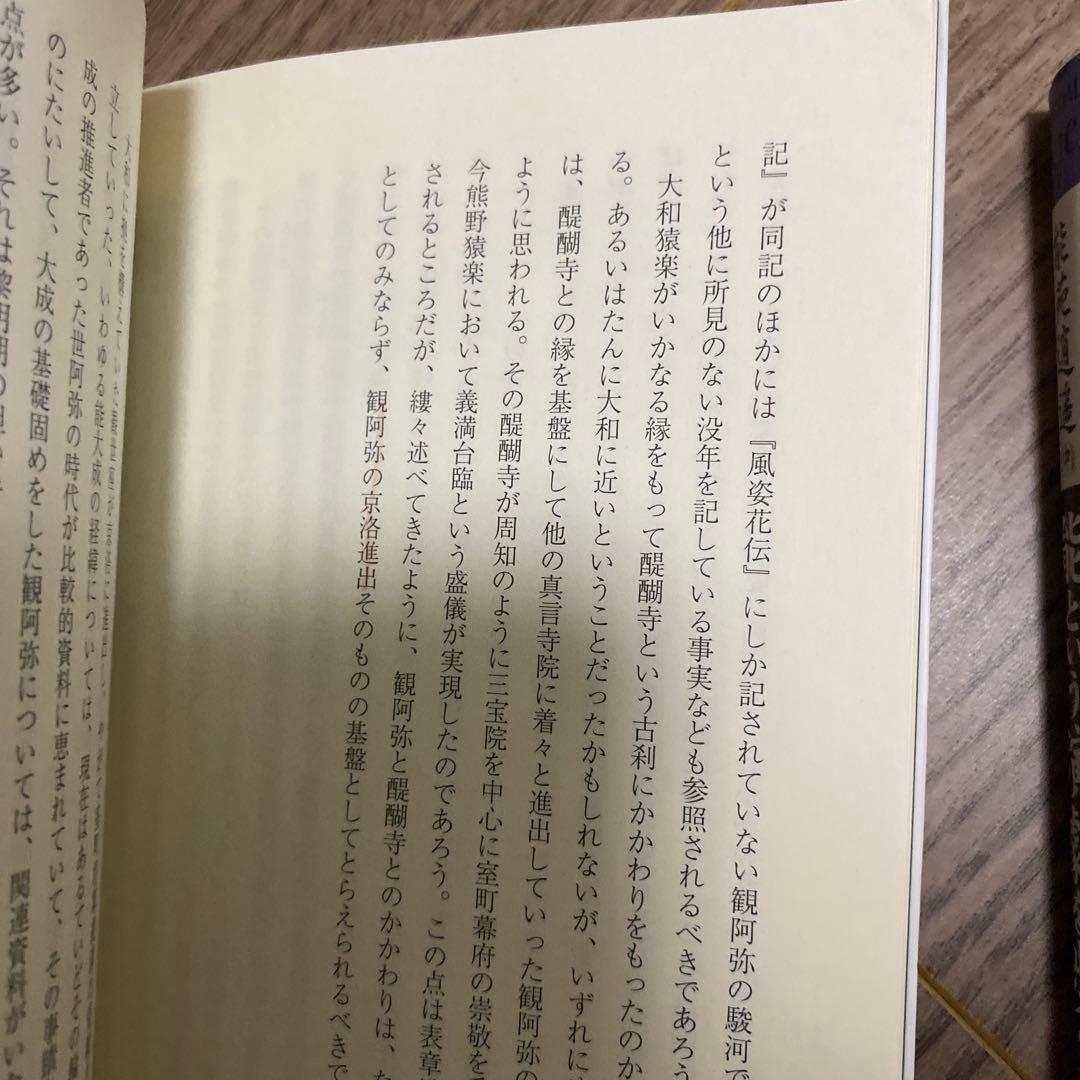 記』が同記のほかには『風姿花伝』にしか記されていない観阿弥の駿河で
という他に所見のない没年を記している事実なども参照されるべきであろう
大和猿楽がいかなる縁をもって醍醐寺という古刹にかかわりをもったのか
る。あるいはたんに大和に近いということだったかもしれないが、いずれに
は、醍醐寺との縁を基盤にして他の真言寺院に着々と進出していった観阿弥の
ように思われる。その醍醐寺が周知のように三宝院を中心に室町幕府の崇敬を
今熊野猿楽において義満台臨という盛儀が実現したのであろう。この点は表章
されるところだが、縷々述べてきたように、観阿弥と醍醐寺とのかかわりは、
としてのみならず、観阿弥の京洛進出そのものの基盤としてとらえられるべきで
立していった、いわゆる能大成の経緯については、現在はあるていどその
成の推進者であった世阿弥の時代が比較的資料に恵まれていて、その事
のにたいして、大成の基礎固めをした観阿弥については、関連資料がい
点が多い。それは黎明期の
能という